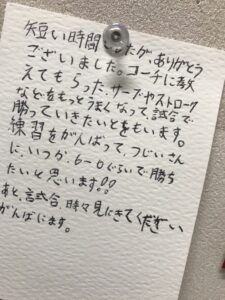 短い時間でしたが、ありがとう
ございました。コーチに教
えてもらった、サーブやストローク
などをもっとうまくなって、試合で
勝っていきたいとをもいます。
練習をがんばって、つじいさん
に、いつか、6-0ぐらいで勝ち
たいと思います!!
あと、試合、時々見にきてくださいい
がんばにます。